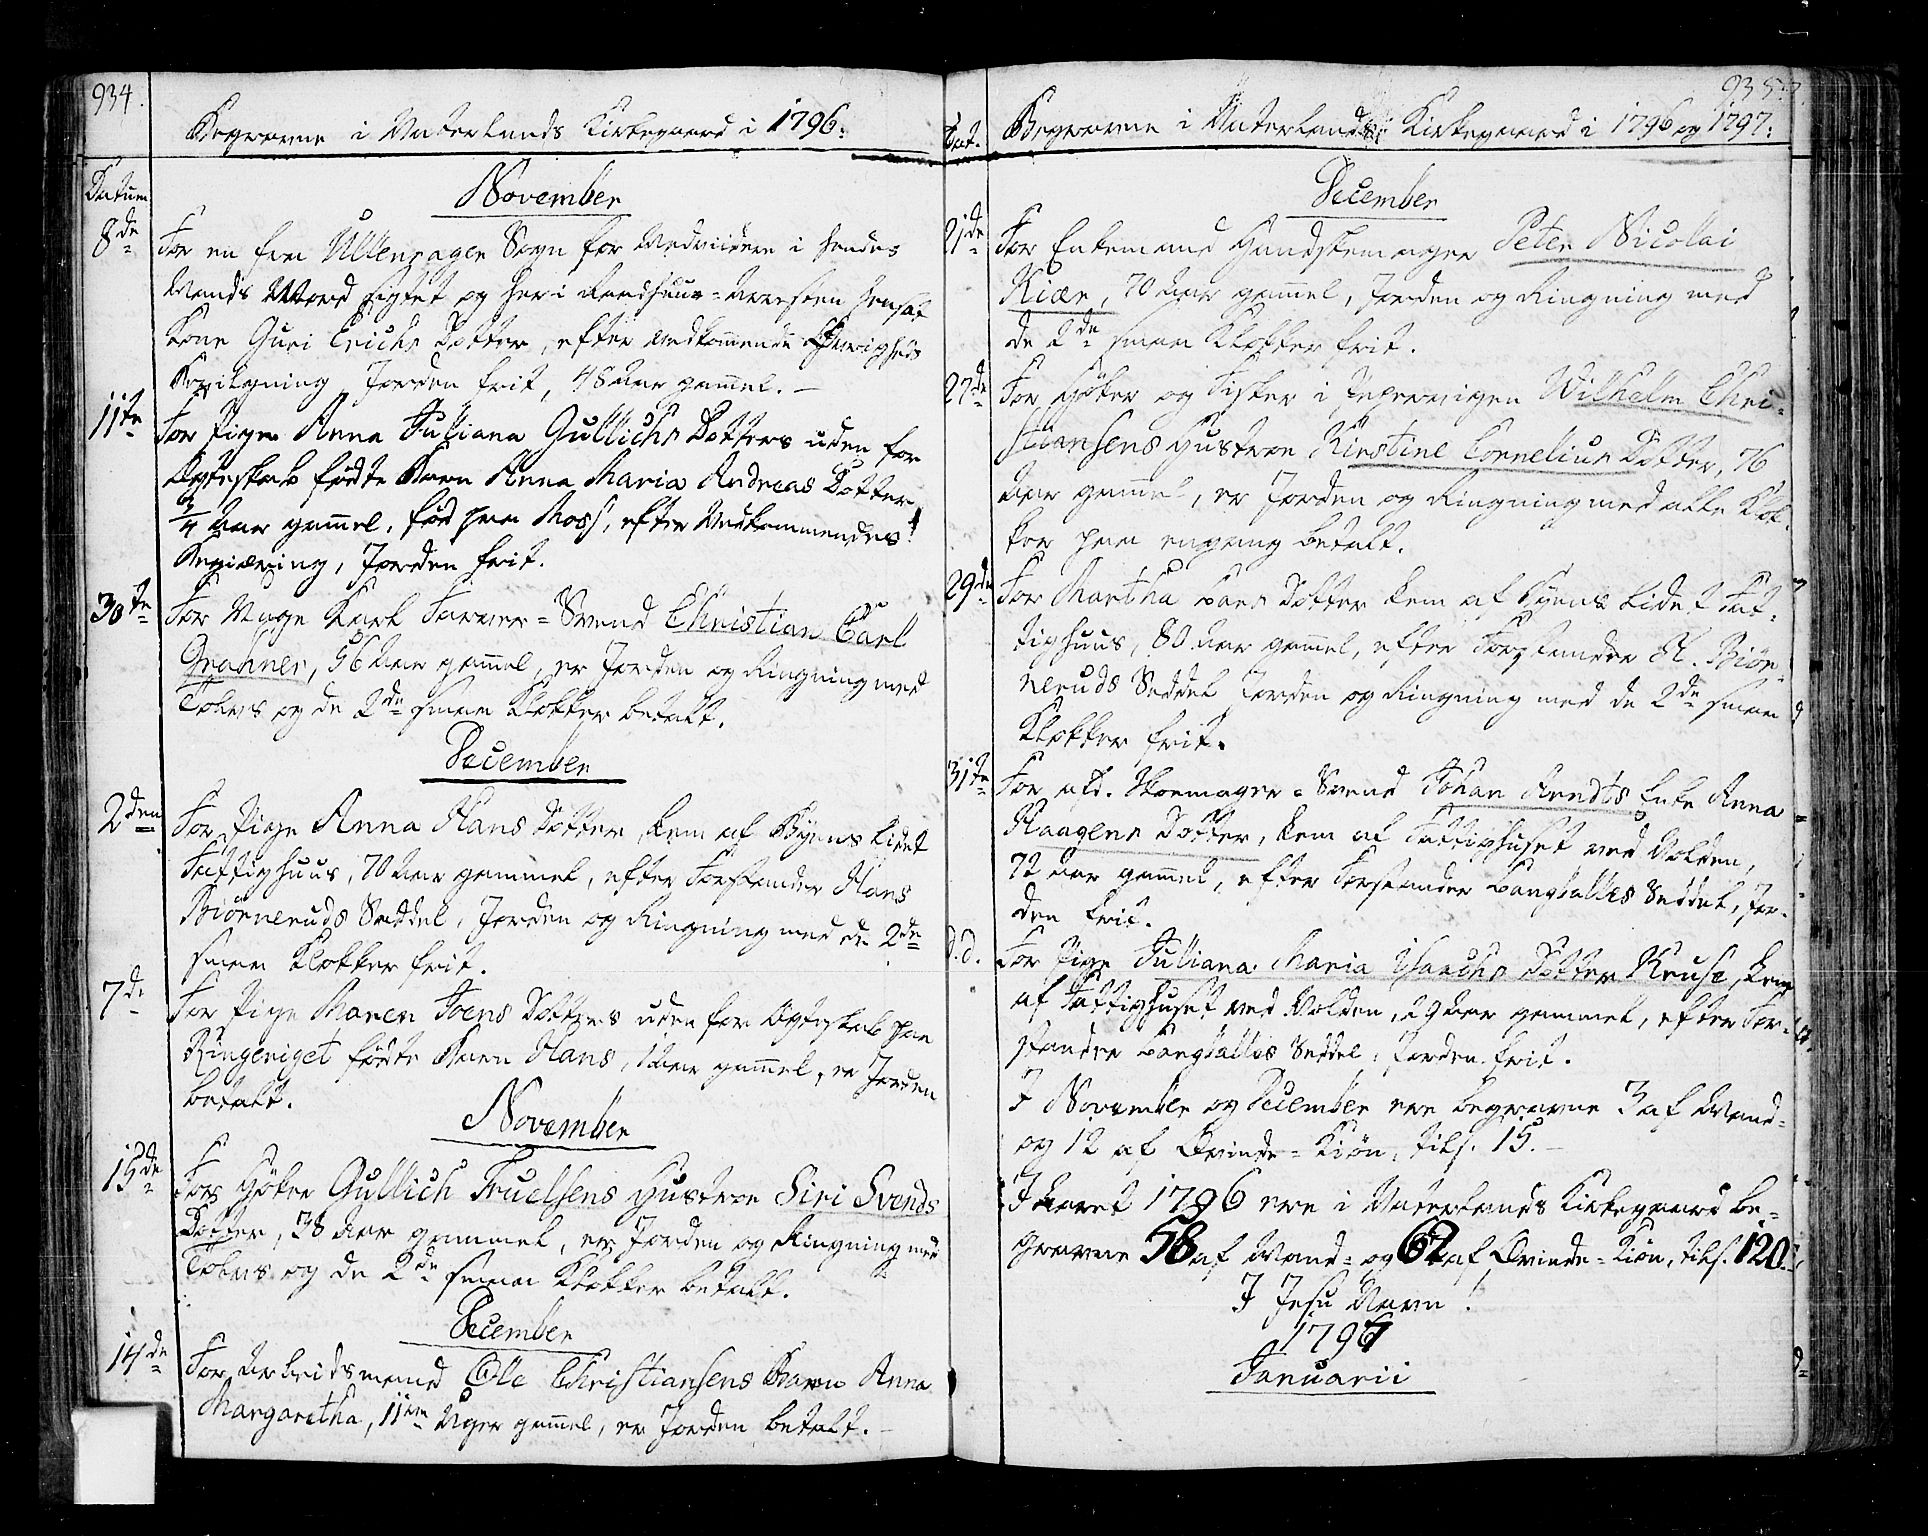 934.
Begravne i Vaterlands Kirkegaard i 1796.
Datum
November
8de For en fra Ullensager Sogn for Medviidere i hendes
Mands Mord sigtet og her i Raadhuus-Arresten hensat
Kone Guri Erichs Dotter, efter vedkommende Øvrigheds
Bevilgning, Jorden frit, 48 Aar gam̄el. –
11te For Pige Anna Juliana Gullichs Dotters uden for
Ægteskab fødte Barn Anna Maria Andreas Dotter
¾ Aar gammel, fød paa Moss, efter Vedkommendes
Begiæring, Jorden frit.
30te For Unge Karl Farver-Svend Christian Carl
Grahner, 56 Aar gam̄el, er Jorden og Ringning med
Tolvs og de 2de smaa Klokker betalt.
December
2den For Pige Anna Hans Dotter, Lem af Byens lidet
Fattighuus, 70 Aar gammel, efter Forstander Hans
Biørneruds Seddel, Jorden og Ringning med de 2de
smaa Klokker frit.
7de For Pige Maren Joens Dotters uden for Ægteskab paa
Ringeriget fødte Barn Hans, 1 Aar gam̄el, er Jorden
betalt.
November
15de For Høker Gullich Truelsens Hustroe Siri Svends
Dotter, 38 Aar gammel, er Jorden og Ringning med
Tolvs og de 2de smaa Klokker betalt.
December
14de For Arbeidsmand Ole Christiansens Barn Anna
Margaretha, 11ve Uger gam̄el, er Jorden betalt. –
935.
Dat. Begravne i Vaterlands Kirkegaard i 1796 og 1797.
December
21de For Enkemand Handskemager Peter Nicolai
Kiær, 70 Aar gam̄el, Jorden og Ringning med
de 2de smaa Klokker frit.
27de For Høker og Fisker i Pepervigen Wilhelm Chri-
stiansens Hustroe Kirstine Cornelius Dotter, 76
Aar gam̄el, er Jorden og Ringning med alle Klok-
ker paa engang betalt.
29de For Martha Lars Dotter Lem af Byens lidet Fat-
tighuus, 80 Aar gam̄el, efter Forstander H. Biør-
neruds Seddel Jorden og Ringning med de 2de smaa
Klokker frit.
31te For afd. Skoemager-Svend Johan Arndts Enke Anna
Haagens Dotter, Lem af Fattighuset ved Volden,
72 Aar gam̄el, efter Forstander Bangballes Seddel, Jor-
den frit.
d.d. For Pige Juliana Maria Isaachs Dotter Kruse, Lem
af Fattighuset ved Volden, 29 Aar gammel, efter For-
stander Bangballes Seddel, Jorden frit.
I November og December ere begravne 3 af Mand-
og 12 af Qvinde-Kiøn, tils. 15. –
I Aaret 1796 ere i Vaterlands Kirkegaard be-
gravne 58 af Mand- og 62 af Qvinde-Kiøn, tils. 120.
I Jesu Navn!
1797
Januarii